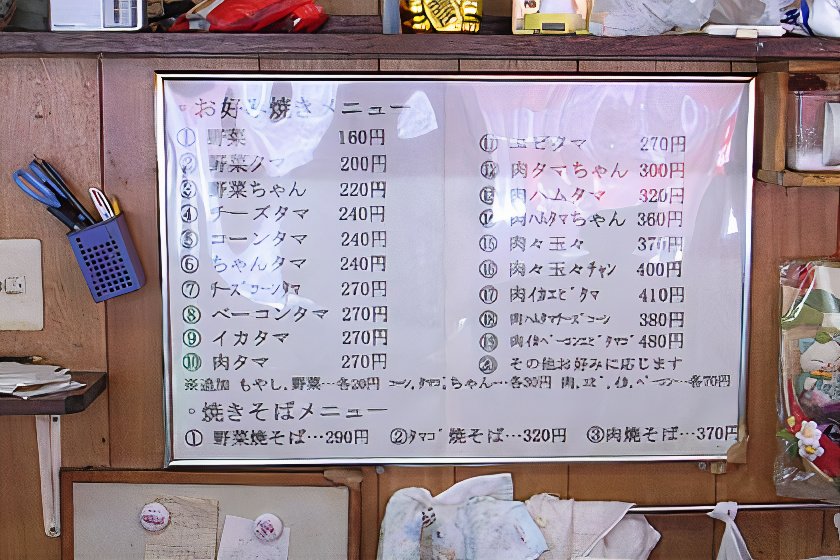 お好み焼きメニュー
① 野菜 160円
② 野菜タマ 200円
③ 野菜ちゃん 220円
④ チーズタマ 240円
⑤ コーンタマ 240円
⑥ ちゃんタマ 240円
⑦ チーズコーンタマ 270円
⑧ ベーコンタマ 270円
⑨ イカタマ 270円
⑩ 肉タマ 270円
⑪ エビタマ 270円
⑫ 肉タマちゃん 300円
⑬ 肉ハムタマ 320円
⑭ 肉ハムタマちゃん 360円
⑮ 肉々玉々 370円
⑯ 肉々玉々チャン 400円
⑰ 肉イカエビタマ 410円
⑱ 肉ハムタマチーズコーン 380円
⑲ 肉イカベーコンエビタマゴ 480円
⑳ その他お好みに応じます
※追加 もやし.野菜…各30円 コーン.タマゴ.ちゃん…各30円 肉.エビ.イカ.ベーコン…各70円
◦焼きそばメニュー
① 野菜焼そば…290円 ②タマゴ焼そば…320円 ③肉焼そば…370円